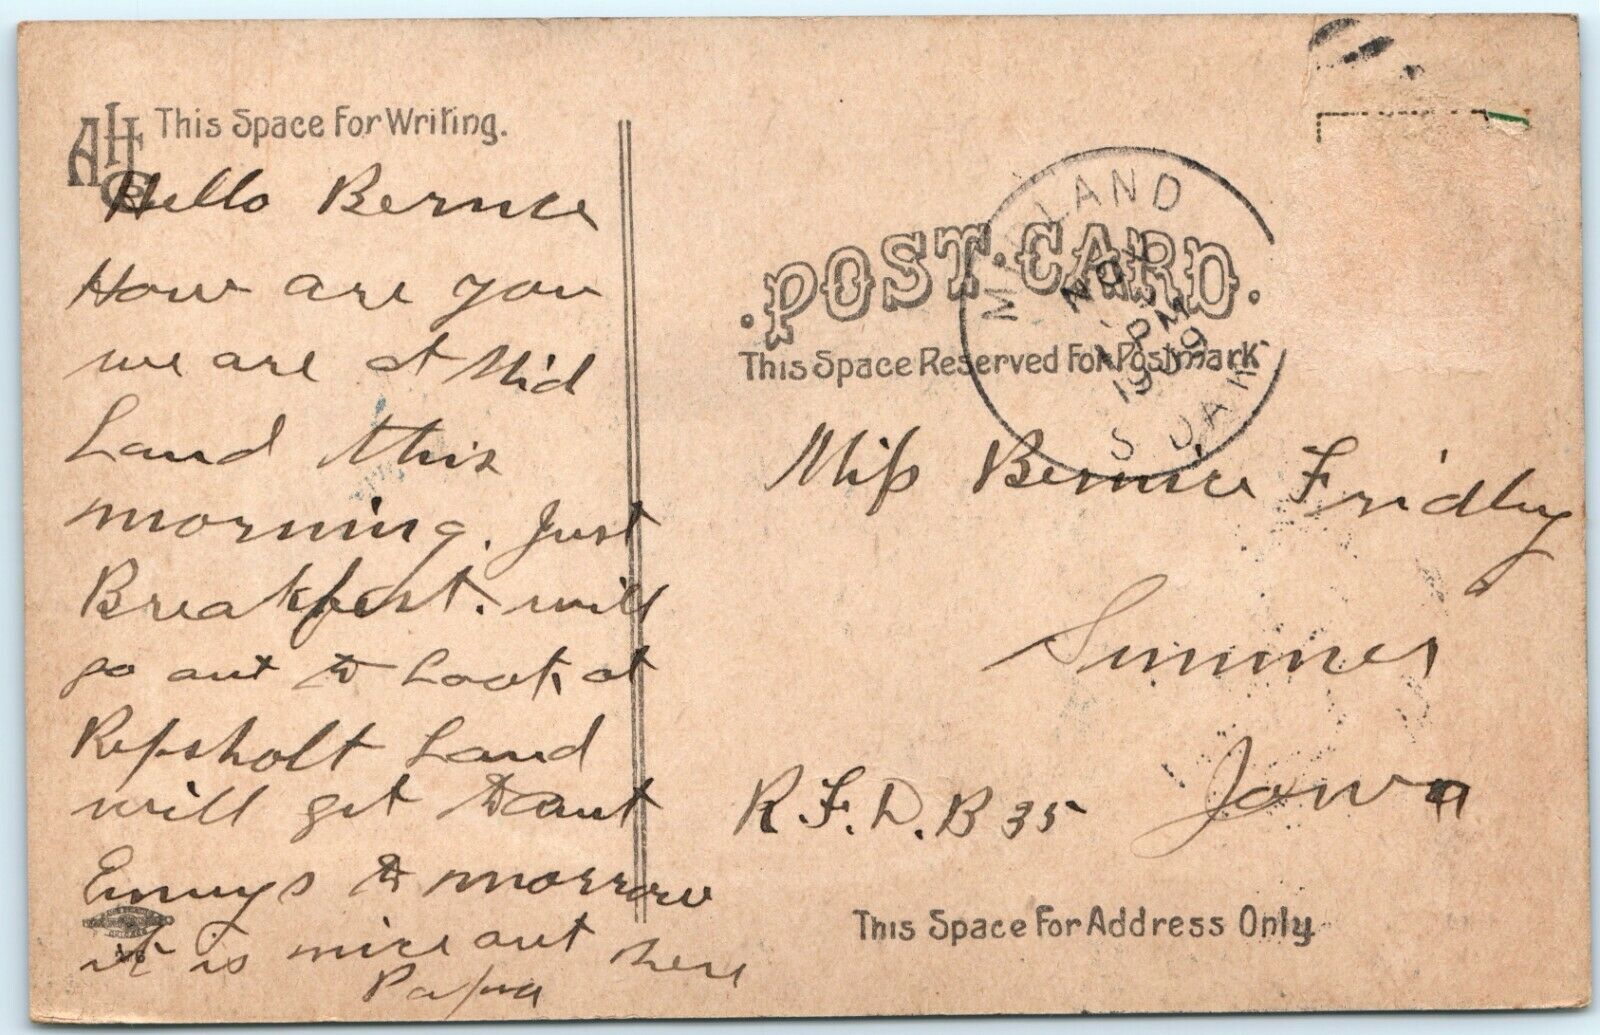 AHCo
This Space For Writing.
Hello Bernice
How are you
we are at Mid
Land this
morning. Just
Breakfest. will
go out to Look at
Repsholt Land
will get to Aunt
Emmys to morrow
it is nice out here
Papa
POST CARD.
This Space Reserved For Postmark
MIDLAND
NOV
PM
1909
S DAK
Miss Bernice Fridley
Sumner
Iowa
R.F.D. B 35
This Space For Address Only